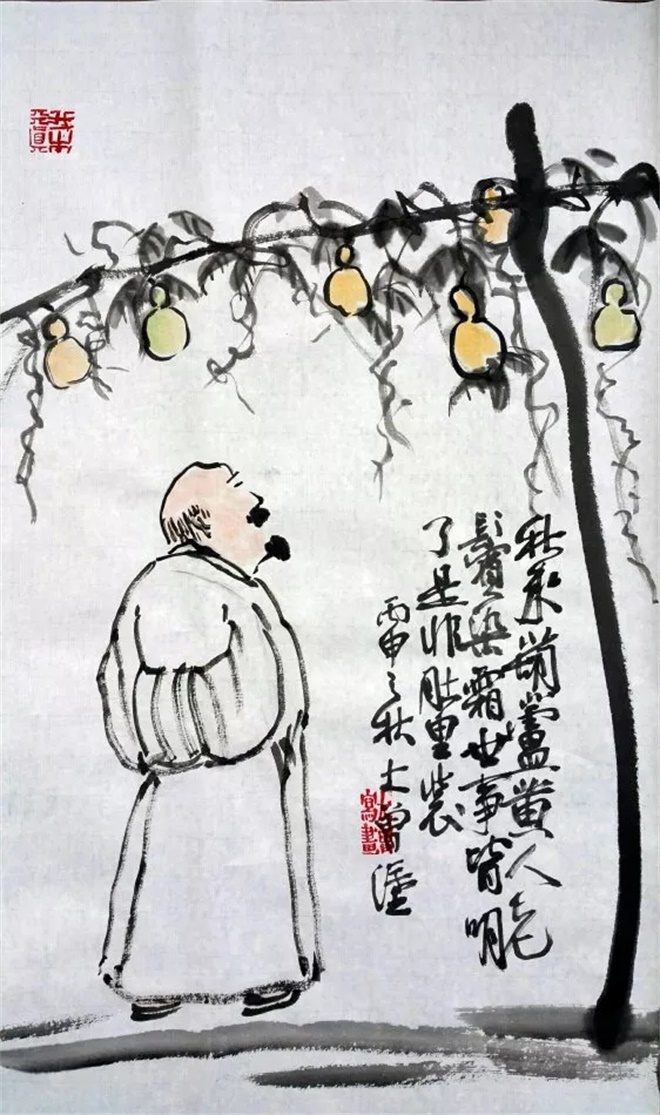 秋来葫芦黄人老
鬓染霜世事皆明
了是非肚里装
丙申之秋